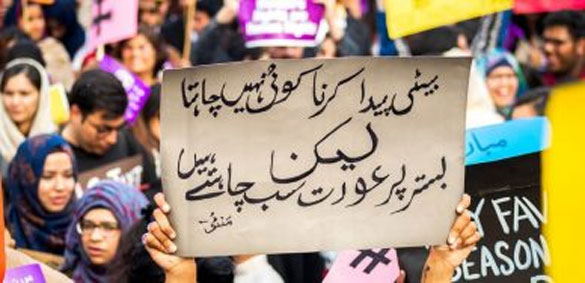 بیٹی پیدا کرنا کوئی نہیں چاہتا
لیکن
بستر پر عورت سب چاہتے ہیں
مبار
FAV
SEASON
#